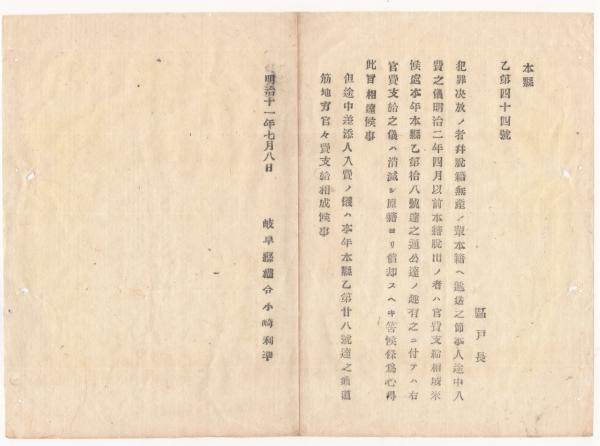 本縣
乙第四十四號
區戸長
犯罪决放ノ者幷脫籍無產ノ輩本籍ヘ遞送之節本人途中入
費之儀明治二年四月以前本籍脫出ノ者ハ官費支給相成來
候處本年本縣乙第拾八號達之通公達ノ趣有之ニ付テハ右
官費支給之儀ハ消滅シ原籍ヨリ償却スヘキ筈候條爲心得
此旨相達候事
但途中差添人入費ノ儀ハ本年本縣乙第廿八號達之通道
筋地方官々費支給相成候事
明治十一年七月八日
岐阜縣權令小崎利準